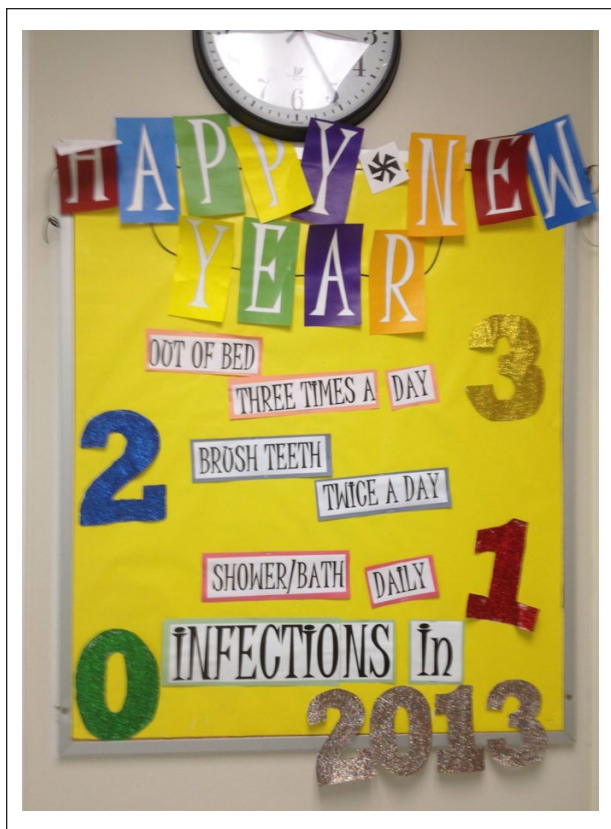 3
4
5
6
7
8
HAPPY NEW
YEAR
OUT OF BED
THREE TIMES A DAY
3
2
BRUSH TEETH
TWICE A DAY
SHOWER/BATH DAILY
1
0
INFECTIONS in
2013